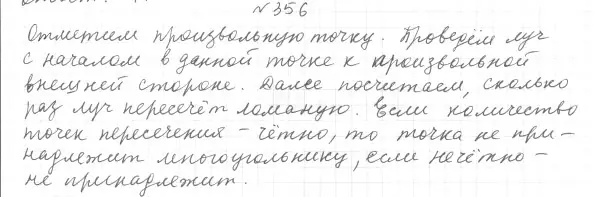 №356
Отметим произвольную точку. Проведём луч
с началом в данной точке к произвольной
внешней стороне. Далее посчитаем, сколько
раз луч пересечёт ломаную. Если количество
точек пересечения – чётно, то точка не при–
надлежит многоугольнику, если нечётно –
не принадлежит.